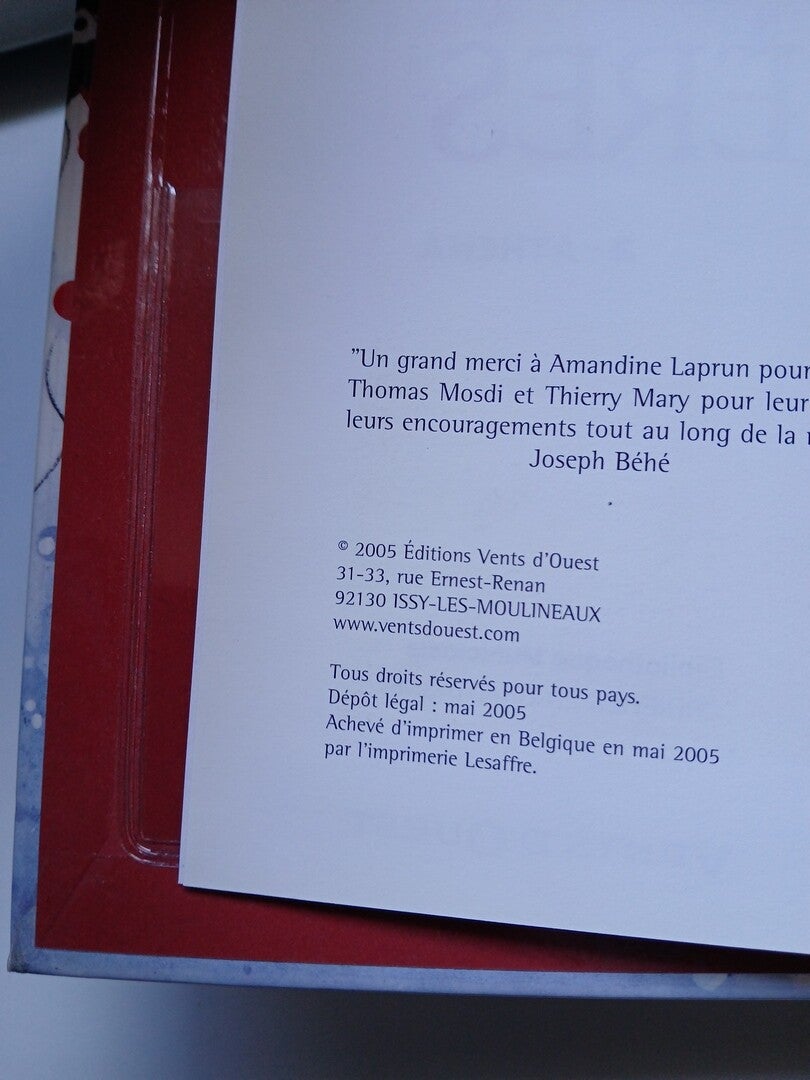 "Un grand merci à Amandine Laprun pour
Thomas Mosdi et Thierry Mary pour leur
leurs encouragements tout au long de la
Joseph Béhé
© 2005 Éditions Vents d'Ouest
31-33, rue Ernest-Renan
92130 ISSY-LES-MOULINEAUX
www.ventsdouest.com
Tous droits réservés pour tous pays.
Dépôt légal : mai 2005
Achevé d'imprimer en Belgique en mai 2005
par l'imprimerie Lesaffre.